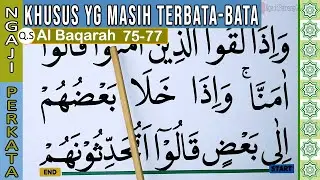 KHUSUS YG MASIH TERBATA-BATA
Q.S Al Baqarah 75-77
NGAJI PERKATA
وَاِذَا لَقُوا الَّذِيْنَ اٰمَنُوْا قَالُوْٓا
اٰمَنَّاۚ وَاِذَا خَلَا بَعْضُهُمْ
اِلٰى بَعْضٍ قَالُوْٓا اَتُحَدِّثُوْنَهُمْ
END
START